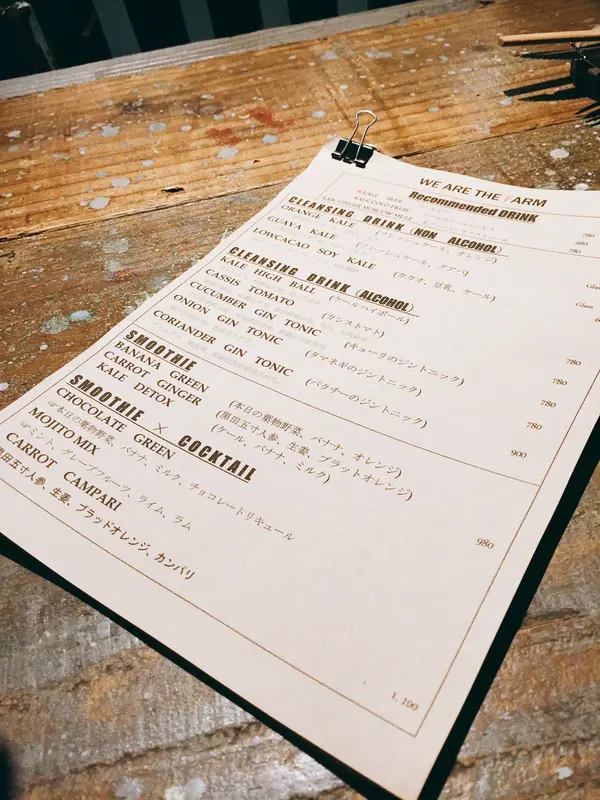 WE ARE THE FARM
Recommended DRINK
KALE BEER
KALE COLD PRESS
RAW GINGER MOSCOW MULE
780
CLEANSING DRINK (NON ALCOHOL)
480
ORANGE KALE (フレッシュケール、オレンジ)
GUAVA KALE (フレッシュケール、グアバ)
LOWCACAO SOY KALE (カカオ、豆乳、ケール)
Glass
CLEANSING DRINK (ALCOHOL)
Glass
KALE HIGH BALL (ケールハイボール)
CASSIS TOMATO (カシストマト)
CUCUMBER GIN TONIC (キューリのジントニック)
780
ONION GIN TONIC (タマネギのジントニック)
780
CORIANDER GIN TONIC (パクチーのジントニック)
780
SMOOTHIE
900
BANANA GREEN (本日の葉物野菜、バナナ、オレンジ)
CARROT GINGER (黒田五寸人参、生姜、ブラッドオレンジ)
KALE DETOX (ケール、バナナ、ミルク)
SMOOTHIE × COCKTAIL
980
CHOCOLATE GREEN
☞本日の葉物野菜、バナナ、ミルク、チョコレートリキュール
MOJITO MIX
☞ミント、グレープフルーツ、ライム、ラム
CARROT CAMPARI
黒田五寸人参、生姜、ブラッドオレンジ、カンパリ
1,100